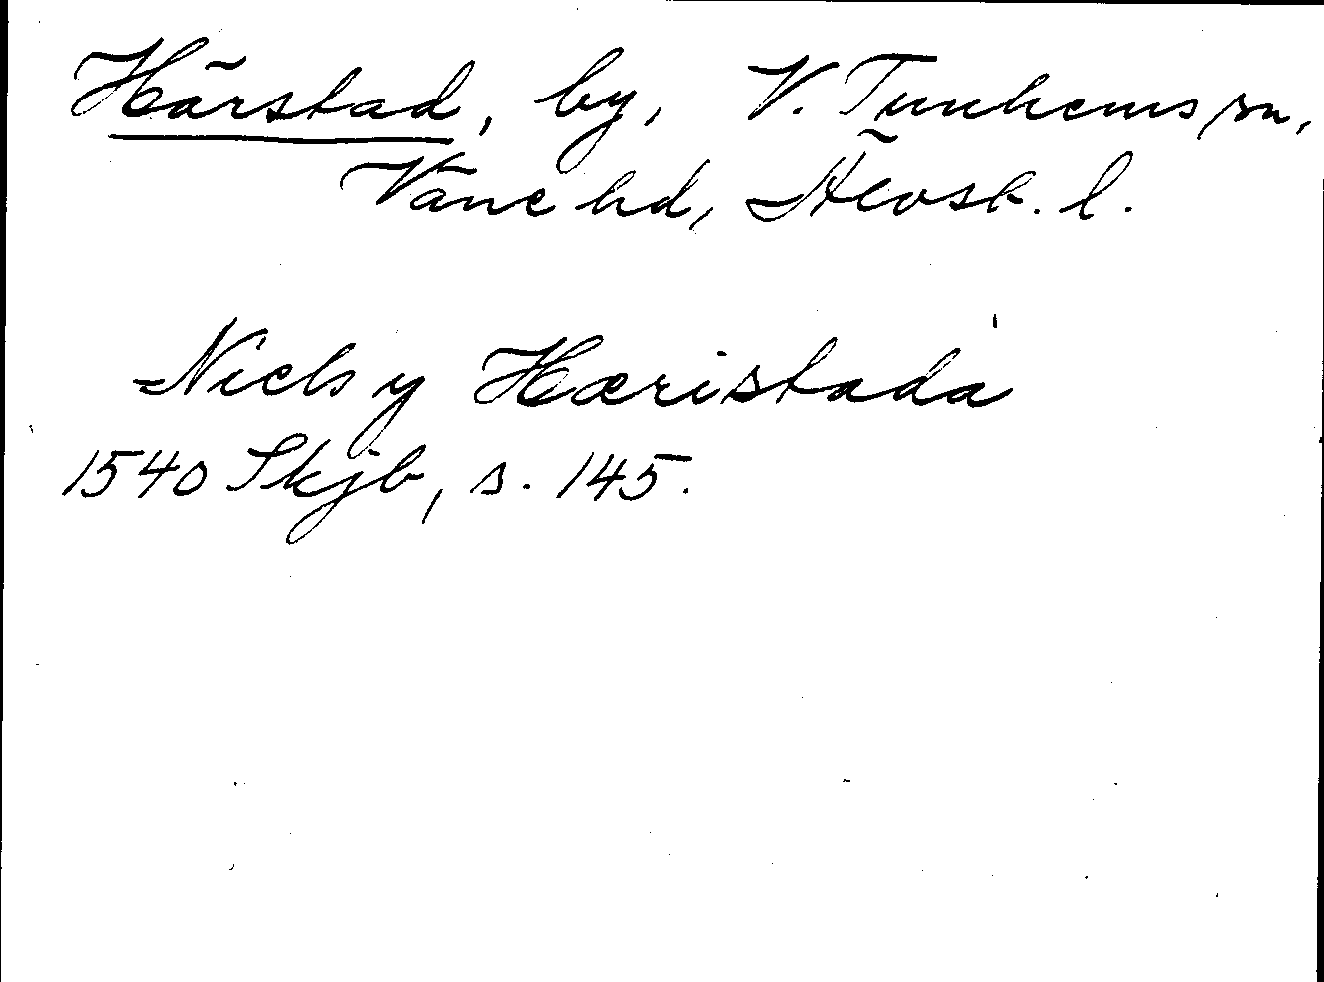 Härstad, by, V. Tunhems sn,
Väne hd, Älvsb. l.
Niels y Hæristada
1540 Skjb, s. 145.